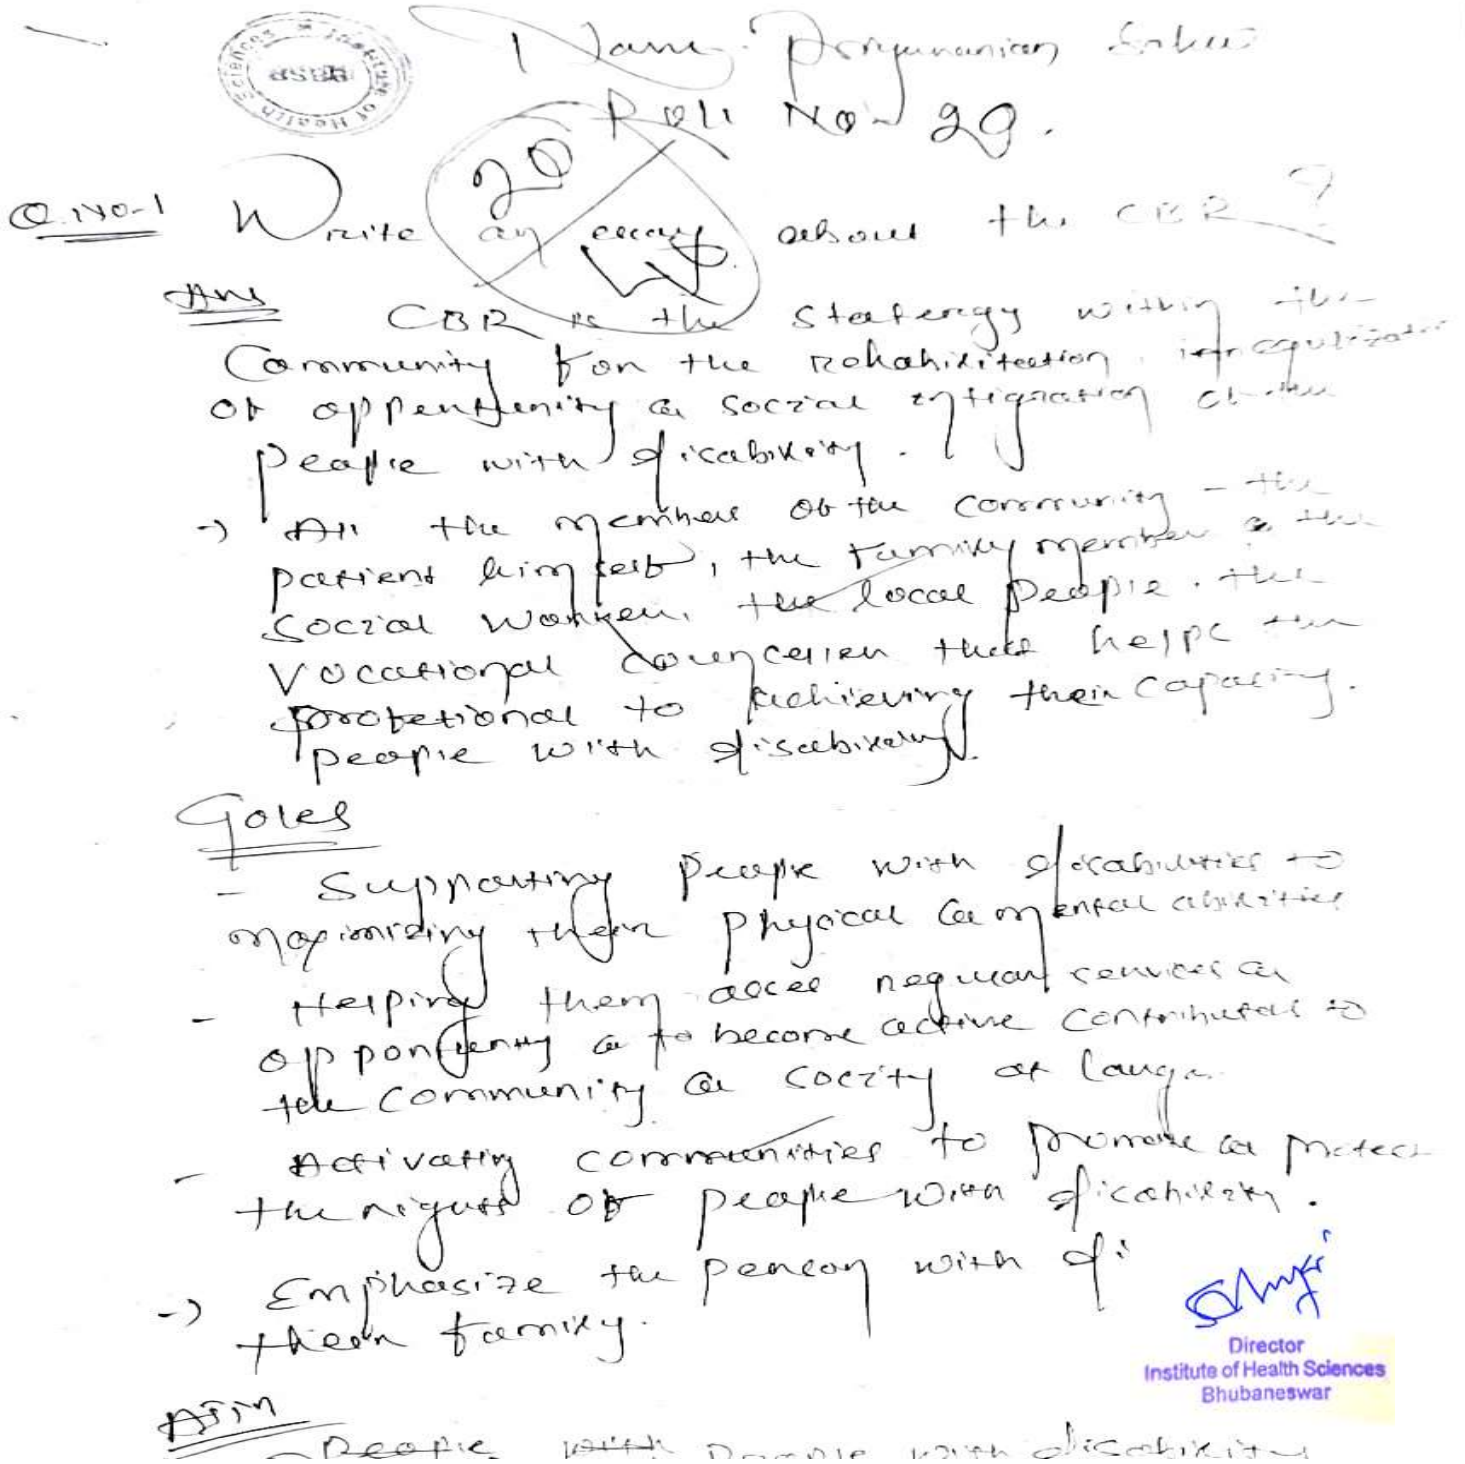 Institute of Health Sciences
Name:- Priyunanian Sahu
Roll No - 29.
20
Q.No-1 Write an essay about the CBR?
Ans CBR is the Statergy within the
Community for the rehabilitation,
of oppertunity & social intigration of
people with disability.
-) All the members of the community - the
patient him self, the family member & the
social worker, the local people. the
vocational counceller that helps the
profetional to achieving their capacity.
people with disability.
Goles
- Supporting people with disabilities to
maximizing their physical & mental abilities
- Helping them acces regular services &
oppertunity & to become active contributors to
the community & socity at large.
- Activating communities to promote & protect
the rights of people with disability.
-) Emphasize the person with di
their family.
Director
Institute of Health Sciences
Bhubaneswar
Aim
- People with People with disability